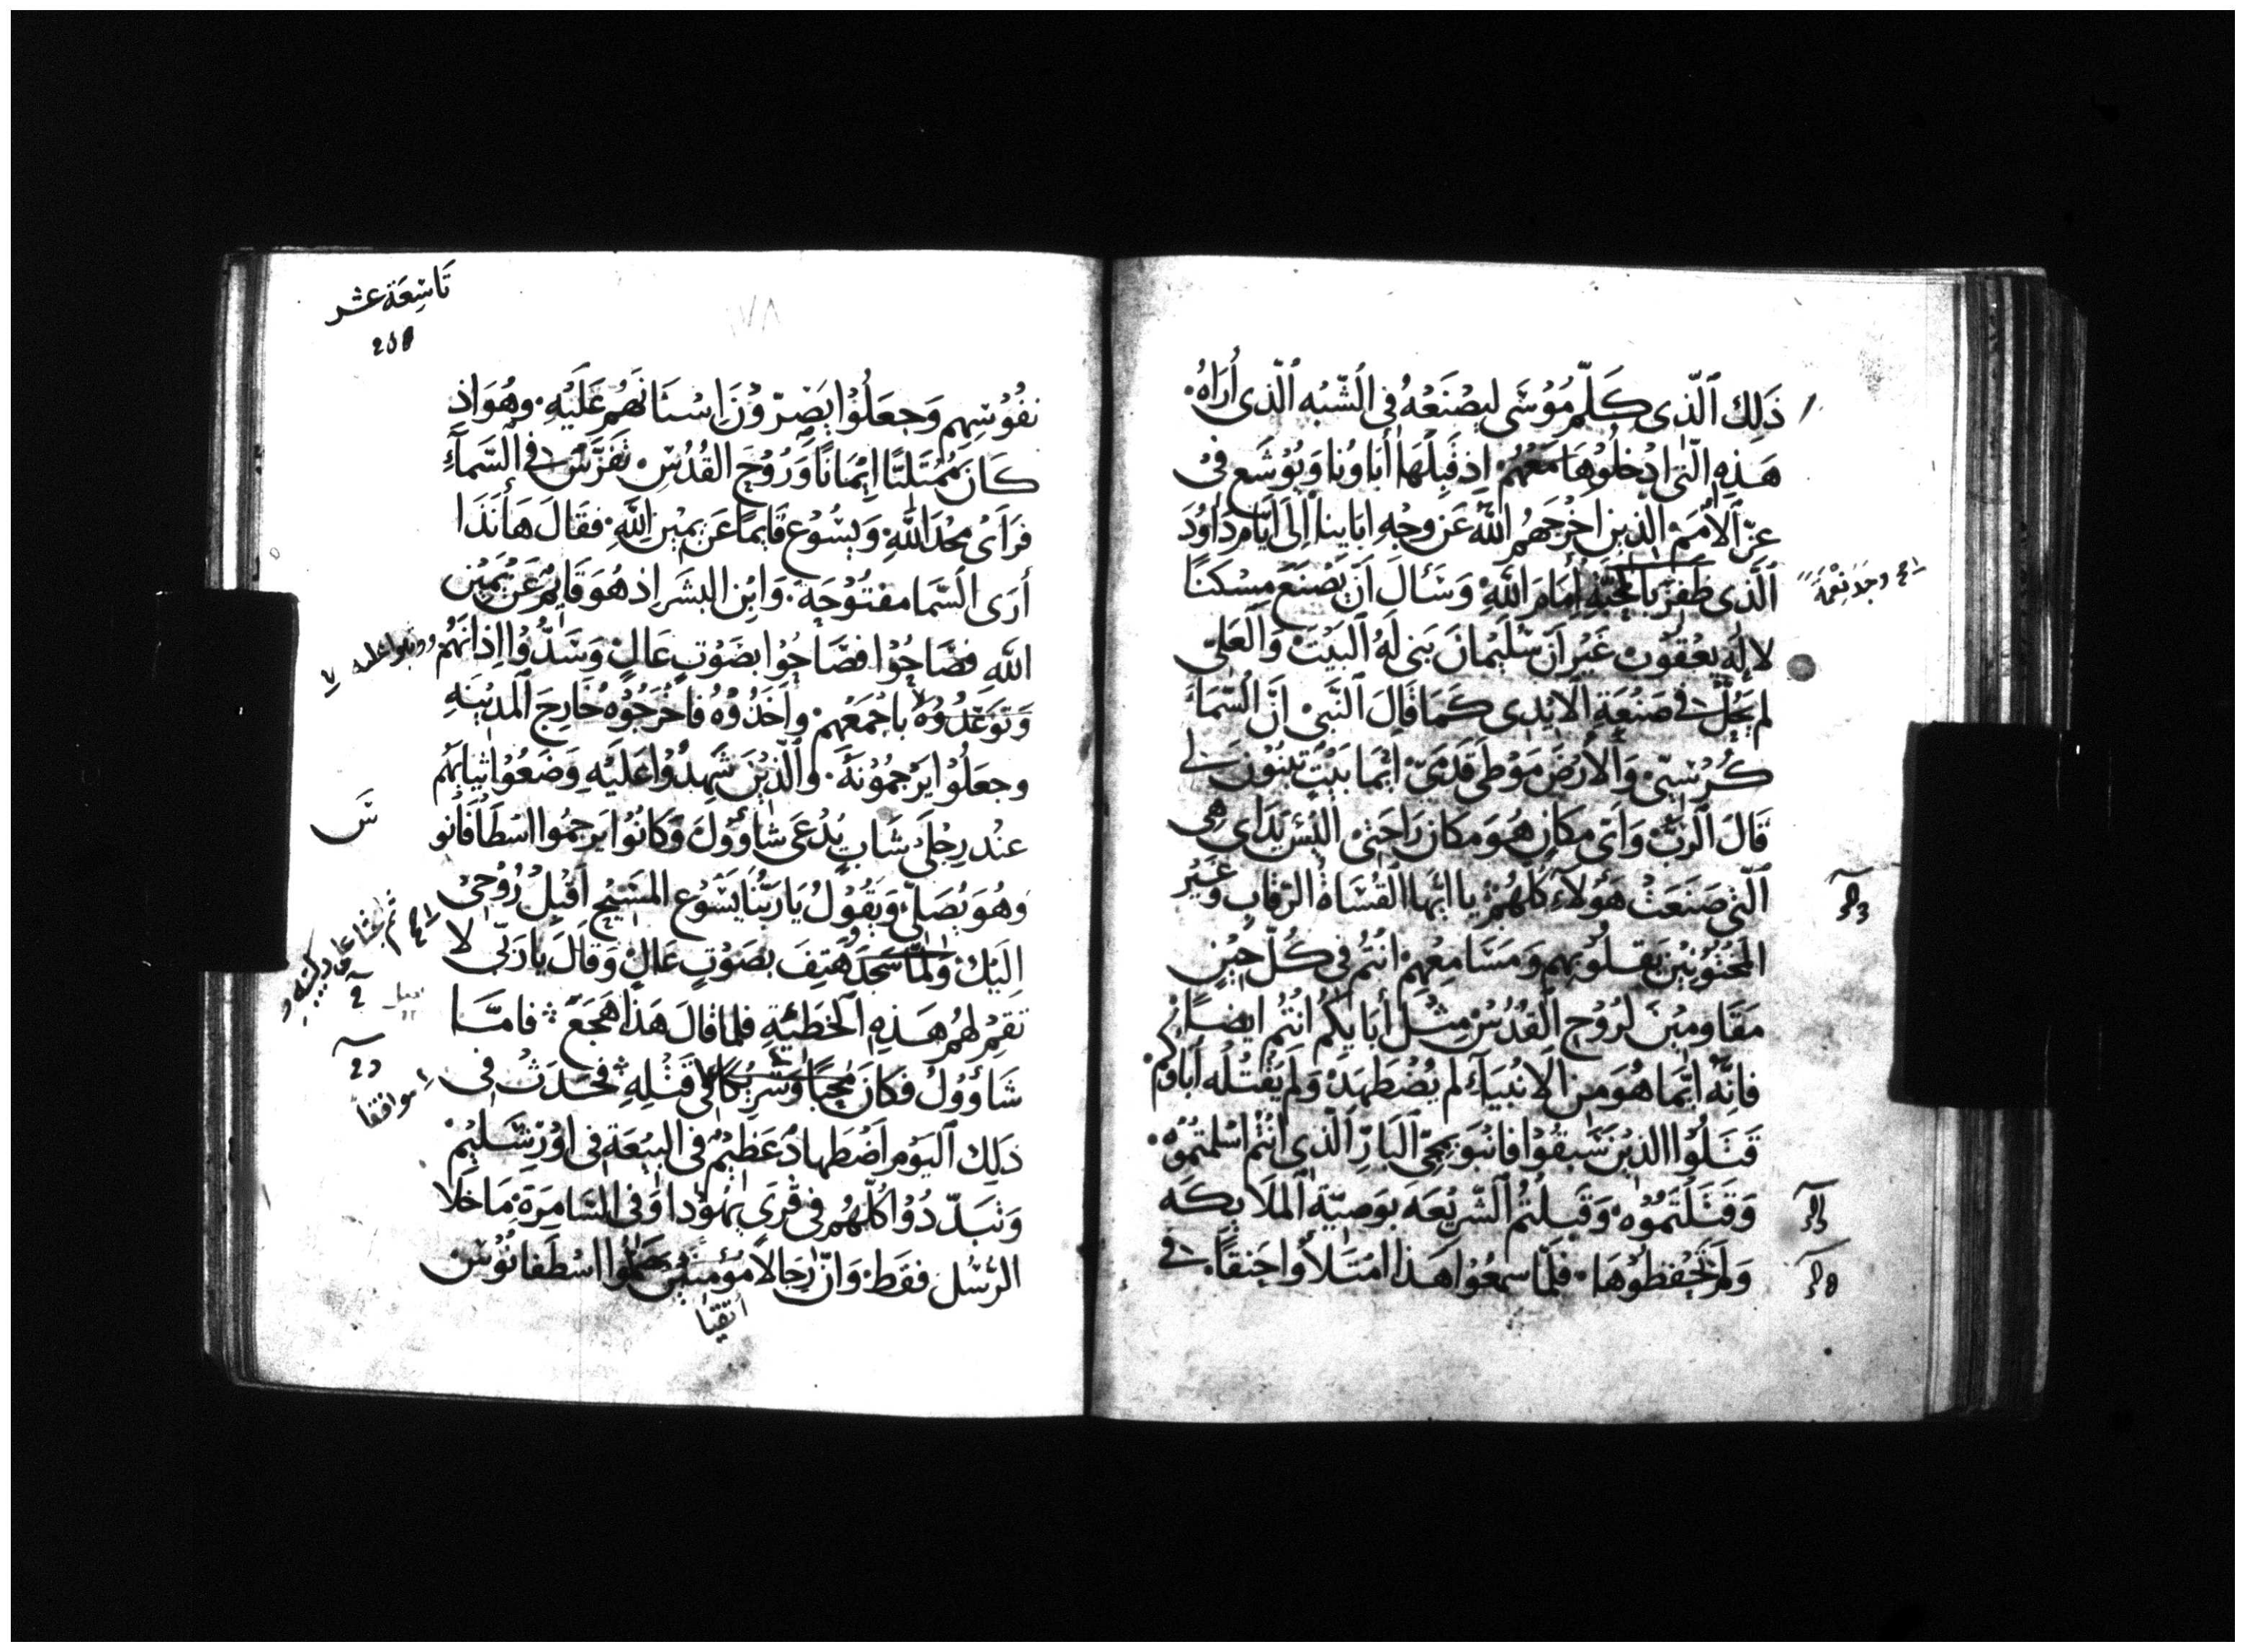 ذَلِكَ ٱلَّذِى كَلَّمَ مُوْسَى ليصْنَعْهُ فِى ٱلشّبْه ٱلَّذى أُرَاهُ.
هَذِهِ الَّتِى ادْخلُوْهَا مَعَهُمْ. اِذ قَبِلَهَا أَبَاونا وَيُوْشَع فِىْ
عِزّ ٱلأمَمْ الَّذِين اخرَجَهُمُ اللَّهُ عَن وجْهِ ابَاينا اِلَى ايَّامِ دَاوُدَ
ٱلَّذِى ظَفرَ بالمحَبَّةِ أمَامَ اللَّهِ وَسَأَلَ اَنْ يَصْنَعَ مِسْكنًا
وجَدَ نِعْمَةً
لاِلَهِ يعْقوبَ غَيْر اَنّ سُلَيْمانَ بَنى لَهُ ٱلبَيْتَ وَٱلعَلىّ
لم يَحُلّ فى صَنْعَةِ ٱلايْدِى كَمَا قَالَ ٱلنَّبى اَنَّ ٱلسَّمَاءَ
كُرْسِيّى وَٱلأرْضَ مَوْطى قَدَمَىّ ايّما بَيْتٍ تبْنُوْنَ لى
قَالَ ٱلرَّبّ وَاَىّ مكَانٍ هُوَ مكَان رَاحَتِى اليْسَ يَدَاى هِى
ٱلَّتِى صَنَعَتْ هَؤلاَءِ كلّهُمْ يا ايّهَا القُسَاةُ الرّقابِ وَغَيْرُ
المَخْتُوْنِيْنَ بقلُوْبهِم وَمَسَامِعِهِمْ انتُم فِى كُلّ حِيْنٍ
مقَاومِيْنَ لرُوْحِ ٱلقُدُسْ مِثْلَ أبَايكُم انتُم ايضًا
فانّه ايّما هُوَ مِن ٱلانْبيَاء لم يُضْطَهَدْ وَلَم يَقْتُلْه أبَاوكُم
قَتَلُوْا الذِيْنَ سَبقُوْا فانْبَوا بِمَجِىّ ٱلبَارّ ٱلَّذى انتُم اسْلَمتمُوْهُ.
وَقَتَلْتمُوْهُ. وَقَبِلْتُمُ ٱلشّرِيْعَه بوَصِيَّةِ ٱلملَايكَه
وَلم تَحْفظُوْهَا. فلَمَّا سمعُوْا هَذا امْتَلأوا حَنقًا. فى
تَاسِعَة عشر
نفُوْسِهِم وَجعَلُوْا يَصِرّوْنَ اِسْنَانَهُم عَلَيْهِ. وهُوَ اذ
كَانَ مُمْتَلئًا اِيْمَانًا وَرُوْحَ القُدُسْ تفَرَّسَ فى السَّمآءِ
فرَاَىْ مجْدَ اللَّهِ وَيسُوْع قايمًا عَن يميْنِ اللَّهِ. فقَالَ هَا نَذَا
أرَى ٱلسّمَا مفتُوْحَة. وَابْن البشَر اِذ هُوَ قَايم عَنْ يَمِيْن
اللَّهِ فصَّاحُوْا بصَوْتٍ عَالٍ وَسَدُّوْا اِذَانَهُمْ
باجْمَعِهِمْ واخَذُوْه فاخْرَجُوْه خَارِجَ ٱلمَدِيْنَه
وجعَلُوْا يَرْجمُوْنَه. وٱلَّذِيْنَ شَهِدُوْا عَلَيْهِ وَضَعُوْا ثيابَهُم
عنْد رِجْلَى شَابٍ يُدْعَى شَاؤُوْلَ وَكانُوْا يَرجمُوا اسْطَافَانُو
وهُوَ يُصَلّى وَيَقُوْلُ يَا رَبّنَا يَسُوْع المسَيْحِ اَقْبِلْ رُوْحِىْ
اِلَيْكَ وَلمَّا سَجَدَ هَتِفَ بصَوْتٍ عَالٍ وَقَالَ يارَبّى لا
تقِمْ لهُم هَذِهِ ٱلخَطيّةِ فلما قالَ هَذا هَجَعَ فامَّا
شَاؤُوْلُ فكَانَ مُحِبًّا وَشَرِيْكًا فى قَتْلِهِ فحَدَثَ فِى
موافقًا
ذَلِكَ ٱليَوْمِ اَضْطَهادٌ عَظِيْمٌ فِى البيْعَةِ فِى اوْرَشَلِيْمْ
وَتبَدّدُوْا كلّهُم فى قُرَى يَهُوْدَا وَفِى السَّامِرَة مَا خَلا
الرُسُل فقَط. وَانّ رِجَالًا مؤمنيْنَ حَملُوا اسْطَفَانُوْسْ
اتقيا